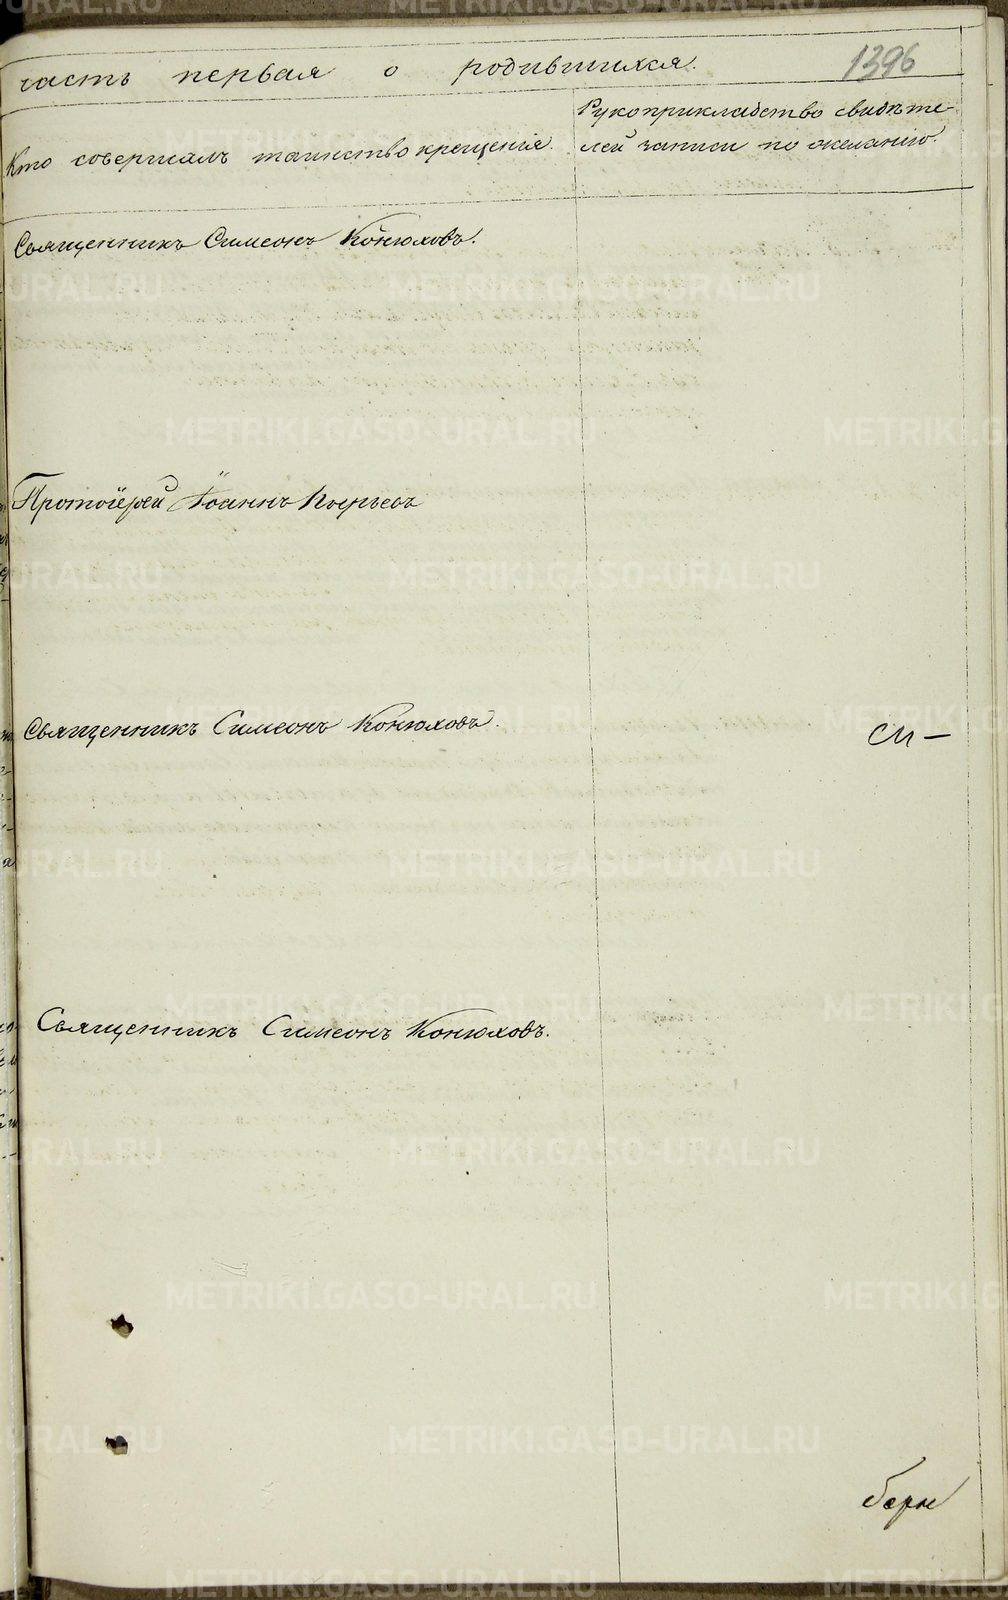 часть первая о родившихся.
1396
Кто совершалъ таинство крещенія.
Рукоприкладство свидѣте-
лей записи по желанію.
Священникъ Симеонъ Конюховъ.
Протоіерей Іоаннъ
Священникъ Симеонъ Конюховъ.
си-
Священникъ Симеонъ Конюховъ.
METRIKI.GASO-URAL.RU